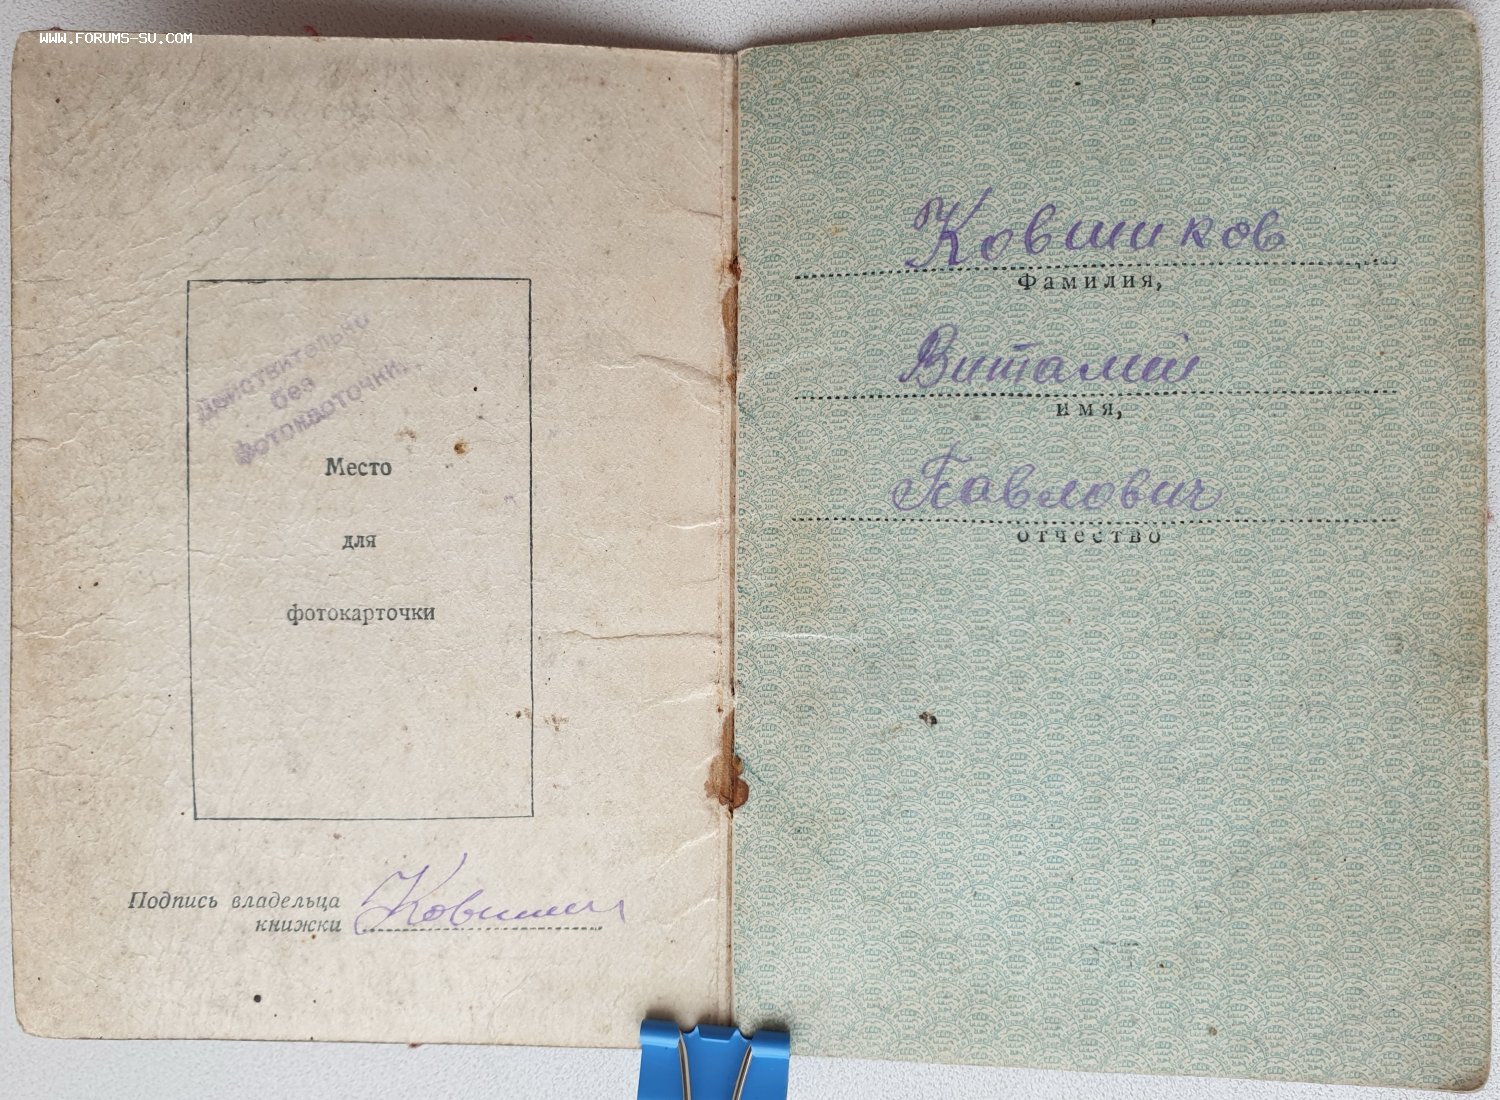 WWW.FORUMS-SU.COM
Действительно
без
фотокарточки.
Место
для
фотокарточки
Подпись владельца
книжки
Ковшик
Ковшиков
Фамилия,
Виталий
имя,
Павлович
отчество